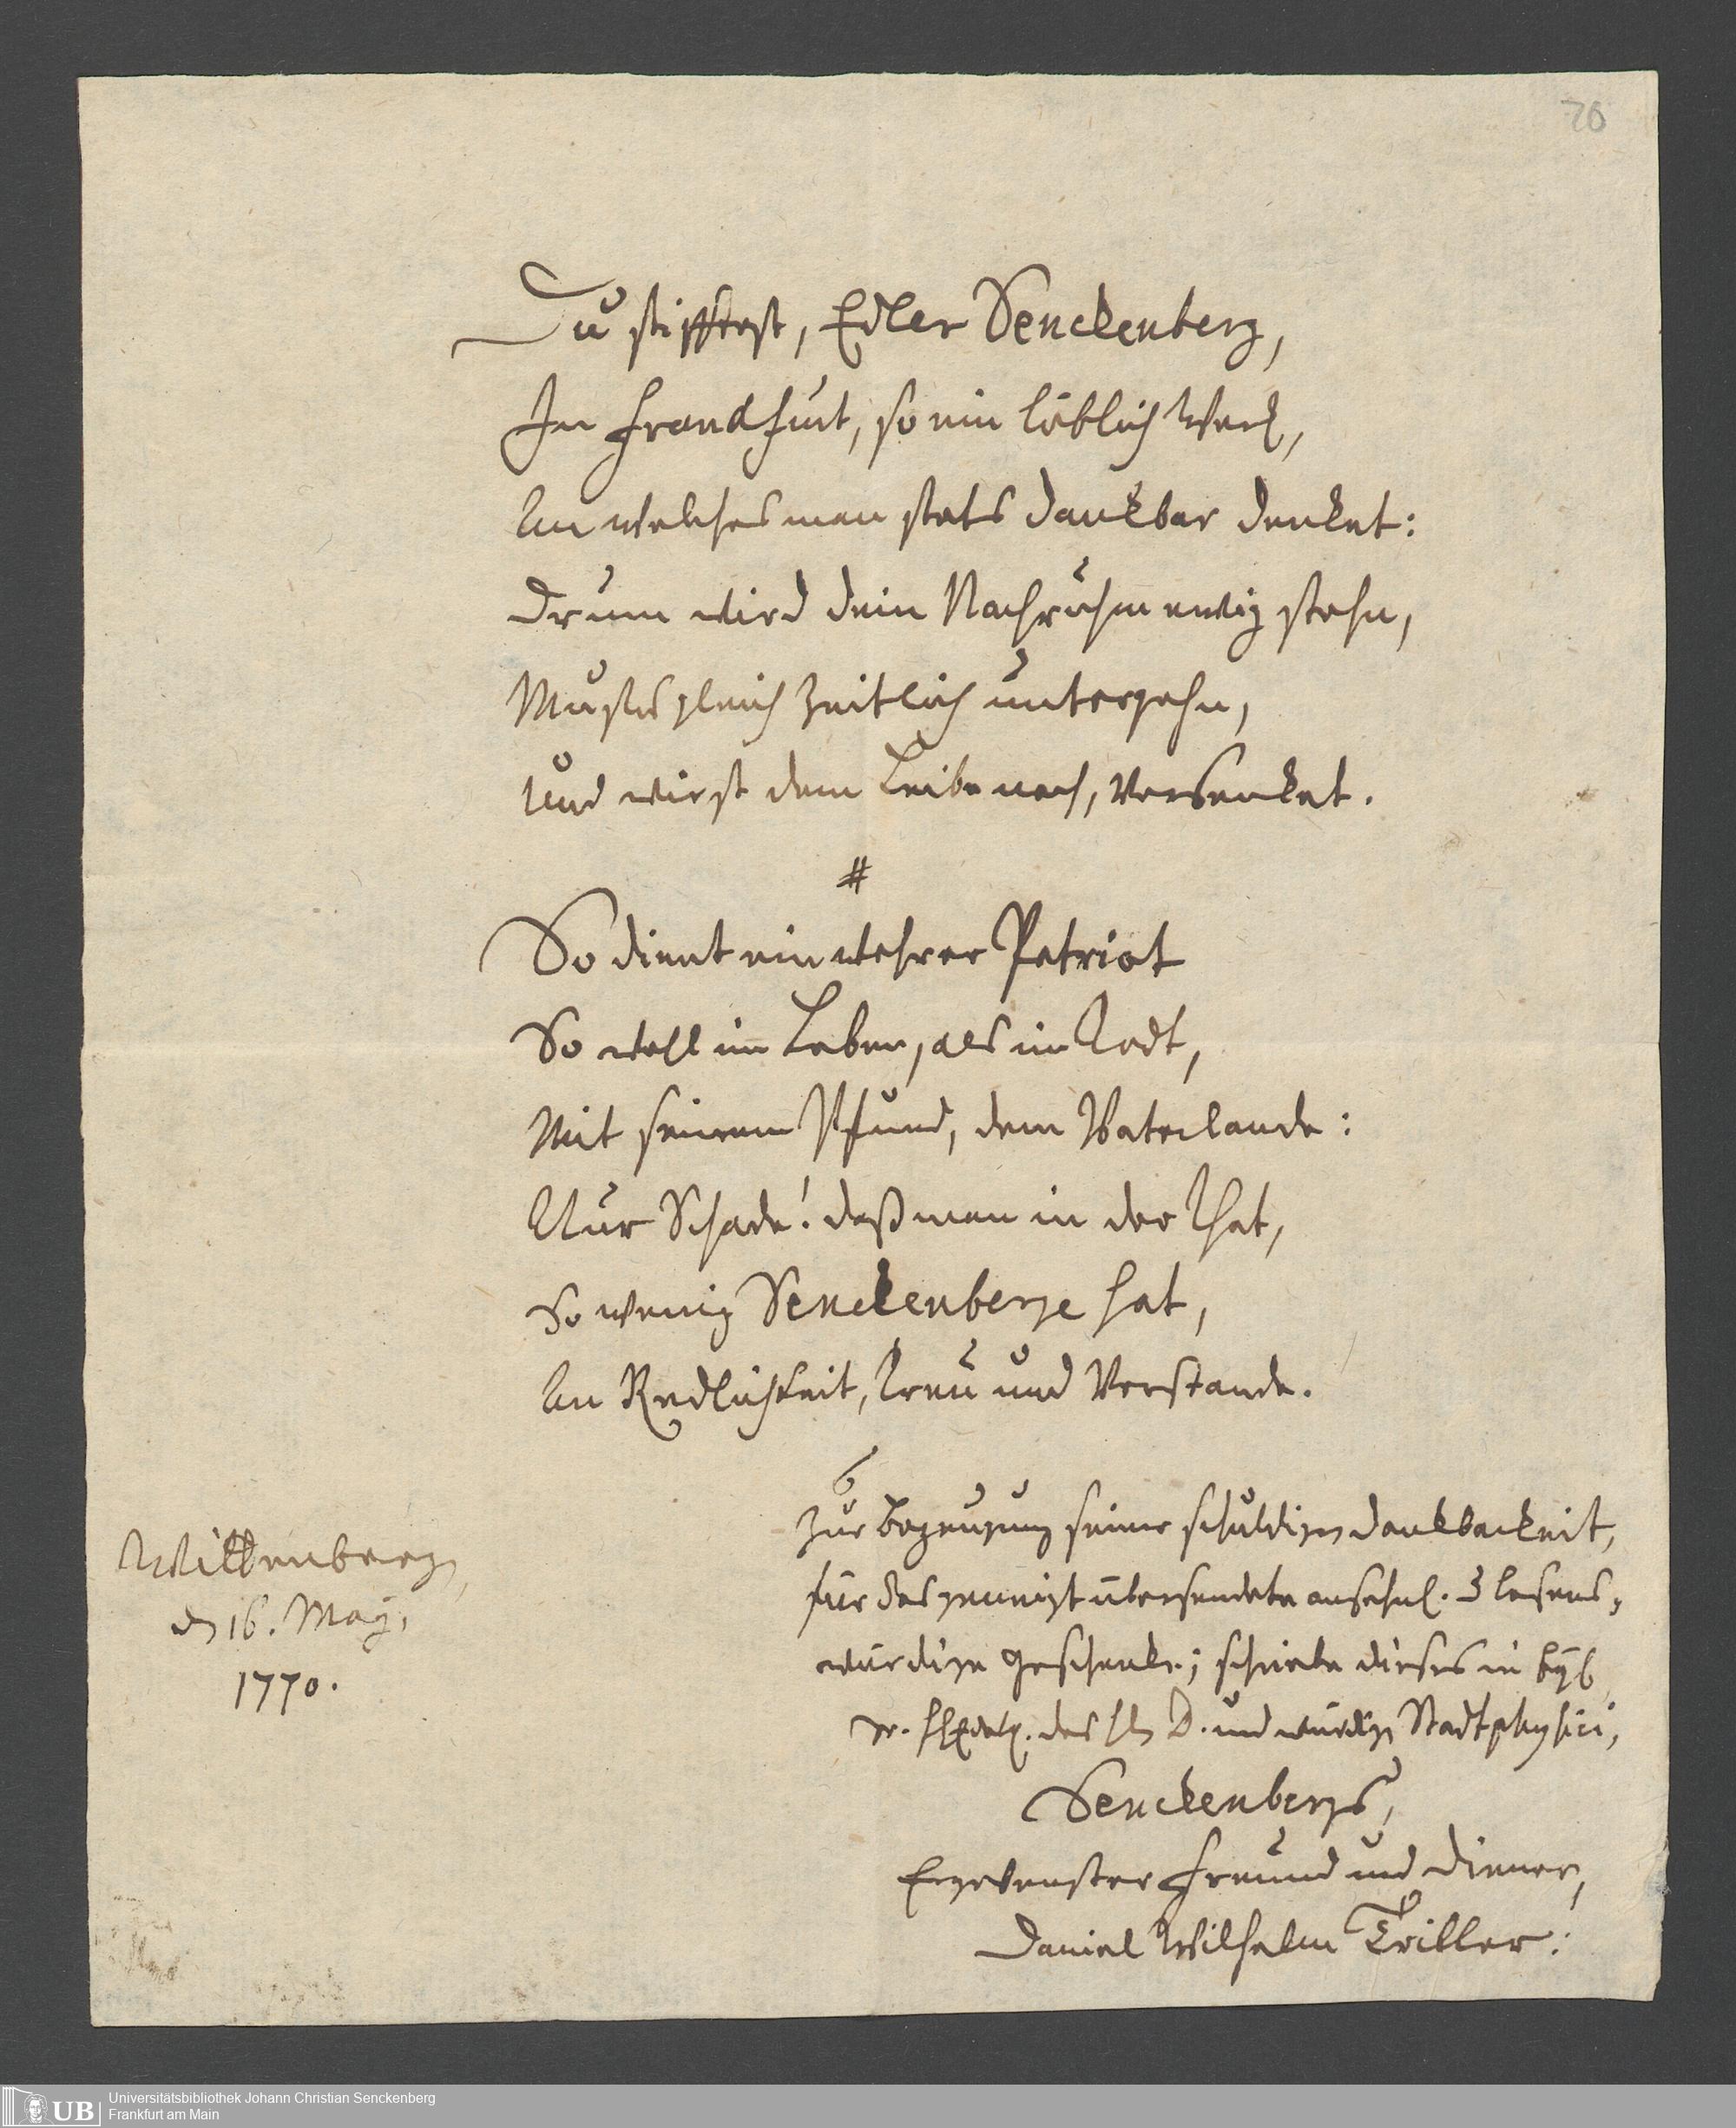 20
Du stifftest, Edler Senckenberg,
In Franckfurt, so ein löblich Werck,
An welches man stets dankbar denket:
Drum wird dein Nachruhm ewig stehn,
Mustu gleich zeitlich untergehn,
Und wirst dem Leibe nach, versenket.
#
So dient ein wahrer Patriot
So wohl im Leben, als im Todt,
Mit seinem Pfund, dem Vaterlande:
Nur Schade! daß man in der That,
So wenig Senckenberge hat,
An Redlichkeit, Treu und Verstande.
Zur Bezeugung seiner schuldigen Dankbarkeit,
für das geneigt übersendete ansehnl. lesens-
würdige Geschenke; schriebe dieses in
des D. und würdigen Stadtphysici,
Senckenbergs,
Ergebenster Freund und Diener,
Daniel Wilhelm Triller.
Wittenberg,
d 16. May,
1770.
UB
Universitätsbibliothek Johann Christian Senckenberg
Frankfurt am Main